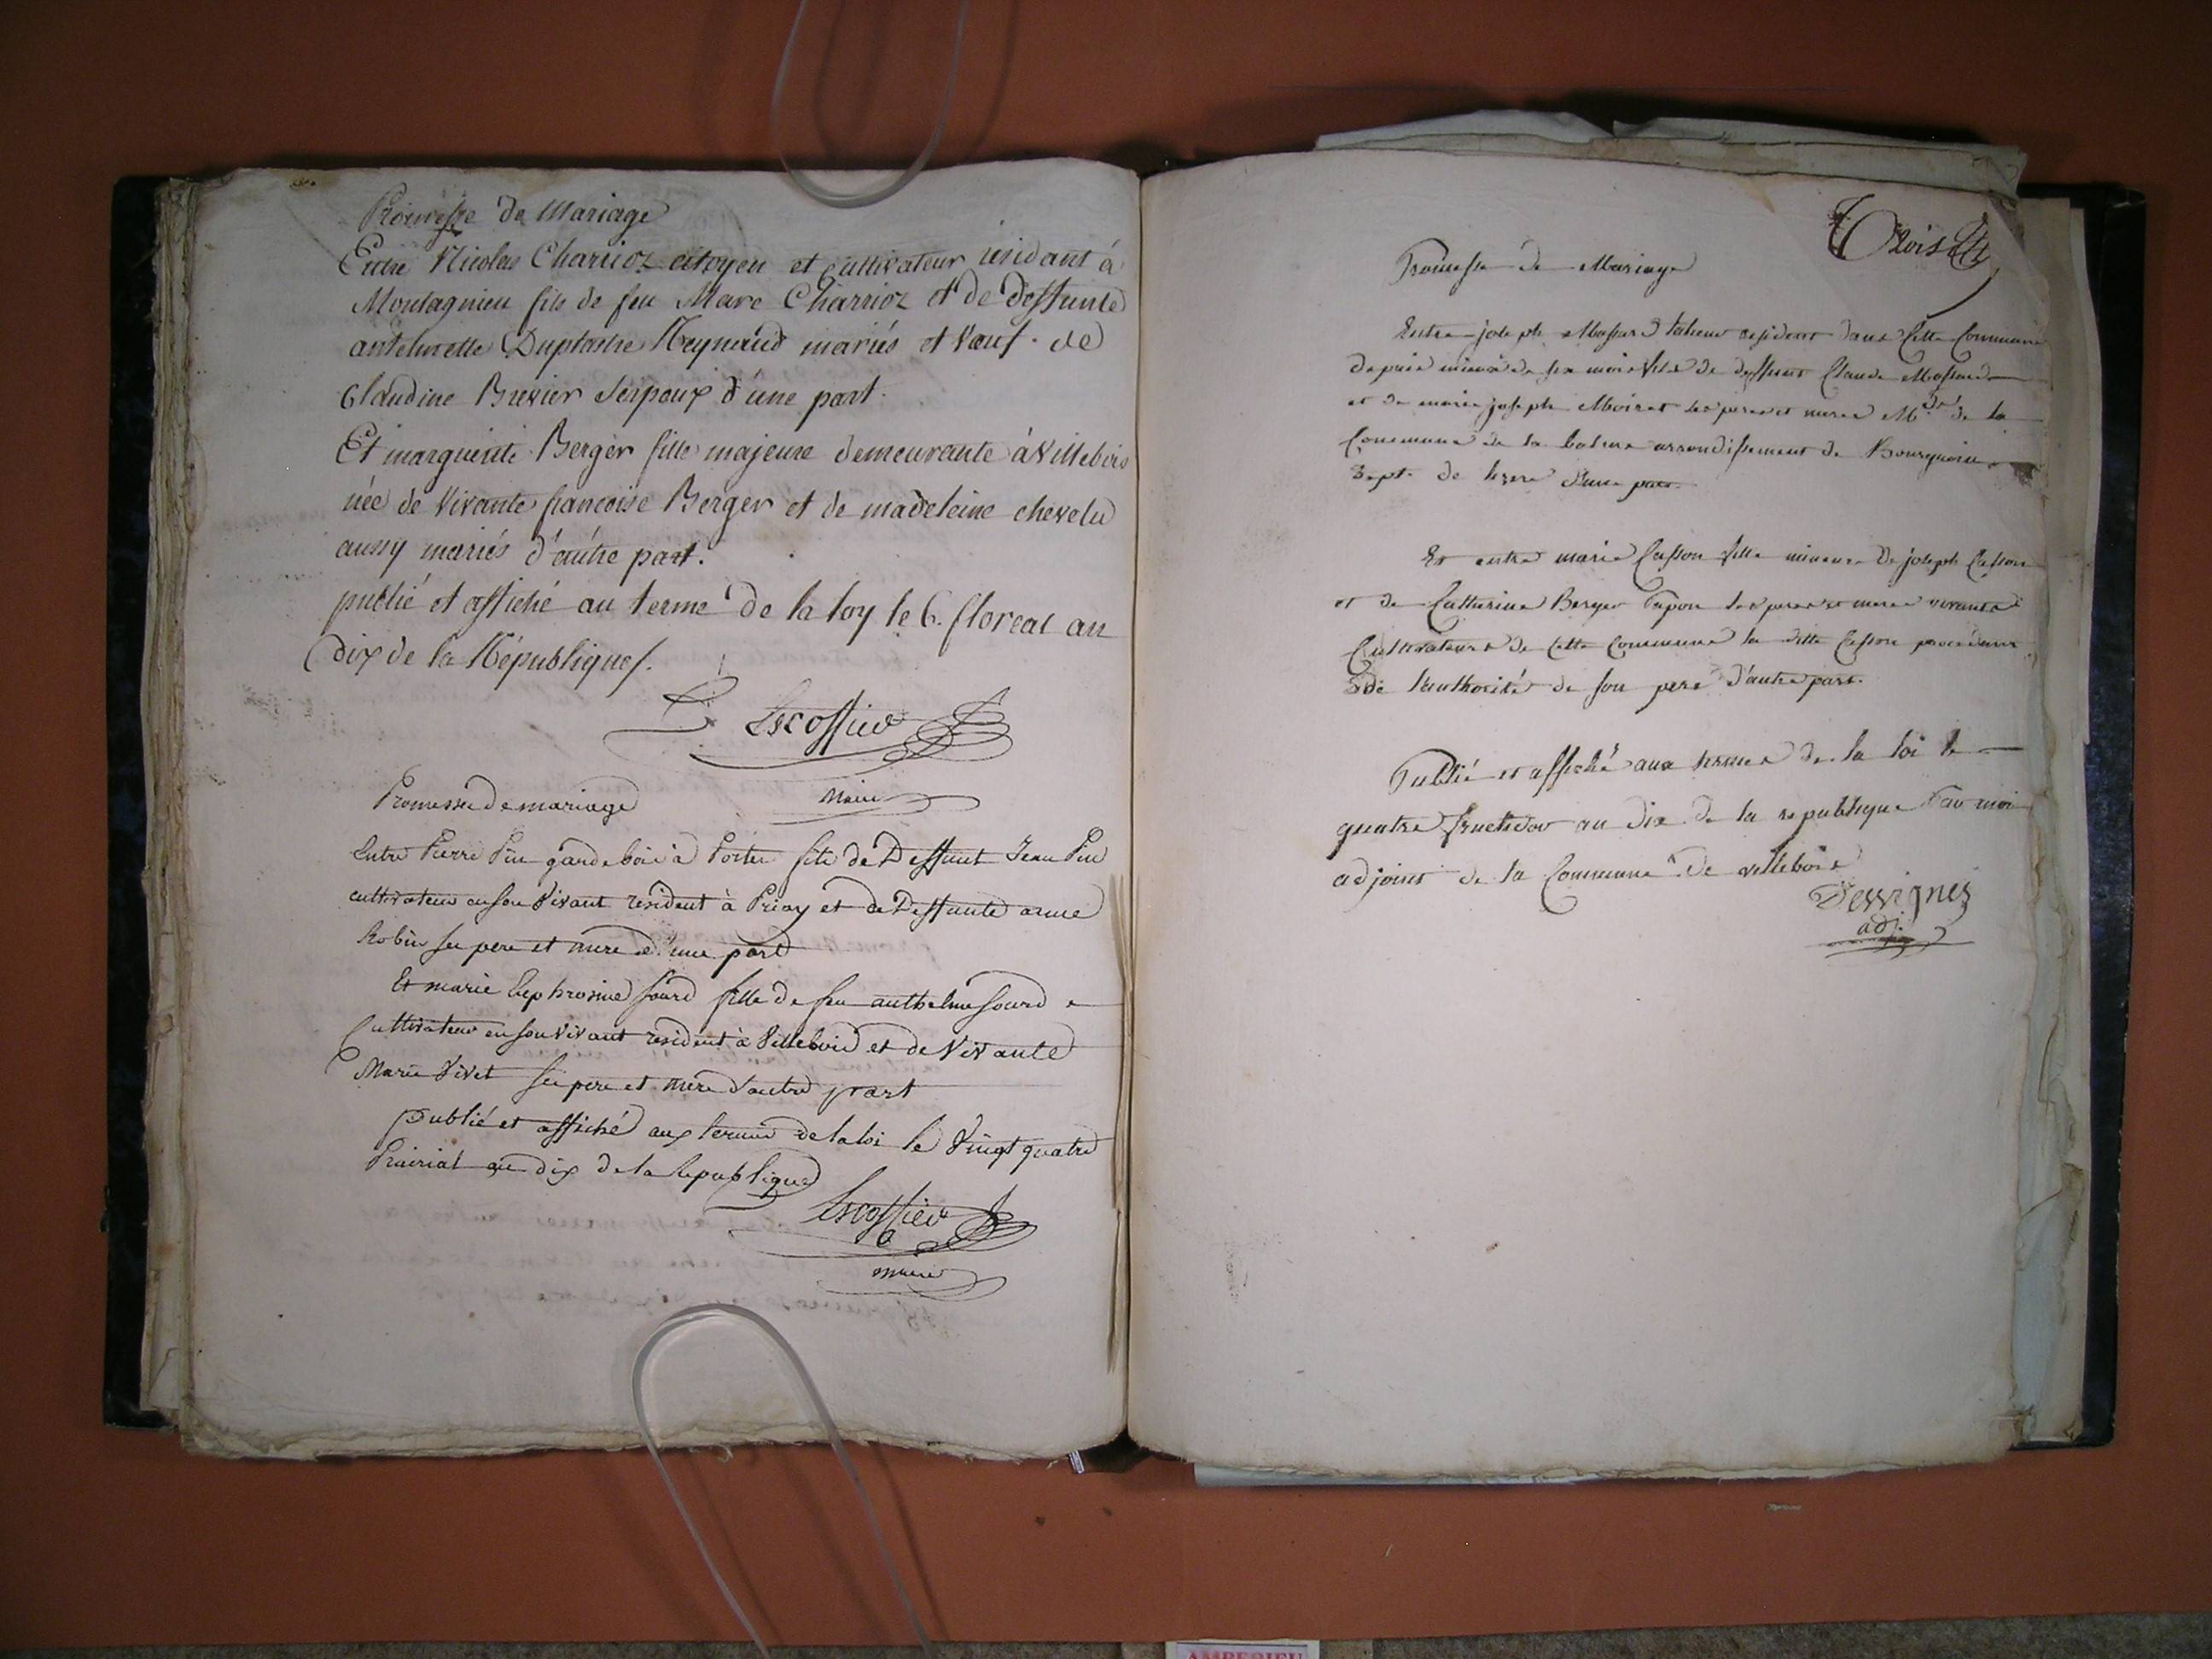 Promesse de Mariage
Entre Nicolas Charrioz citoyen et cultivateur résidant à
Montagnieu fils de feu Marc Charrioz et de deffunte
antelmette Duplastre Reynaud mariés et veuf de
Claudine Brevier Serpoux d'une part.
Et marguerite Berger fille majeure demeurante à Villebois
née de vivante francoise Berger et de madeleine chevelu
aussy mariés d'autre part.
publié et affiché au terme de la loy le 6. floreal an
dix de la République.
Escoffier
Maire
Promesse de mariage
Entre Pierre Pin garde bois à Portes fils de Deffunt Jean Pin
cultivateur en son vivant resident à Priay et de Deffunte anne
Robin ses pere et mere d'une part
Et marie Euphrosine Sourd fille de feu anthelme Sourd
Cultivateur en son vivant resident à Villebois et de Vivante
Marie Vivet ses pere et mere d'autre part
publié et affiché aux termes de la loi le Vingt quatre
Prairial an dix de la Republique
Escoffier
maire
Trois
Promesse de Mariage
Entre joseph Massard resident dans Cette Commune
depuis mieux de six mois fils de deffunt Claude Massard
et de marie joseph Moiret ses pere et mere Mds de la
Commune de la balme arrondissement de Bourgouin
Dept. de lizere d'une part.
Et entre marie Casson fille mineure de joseph Casson
et de Catherine Berger Papon ses pere et mere vivants
Cultivateurs de Cette Commune la ditte Casson procedant
de l'authorité de son pere d'autre part.
Publié et affiché aux termes de la loi le
quatre fructidor an dix de la republique Par moi
adjoint de la Commune de villebois
Dessignes
adj.
AMBERIEU